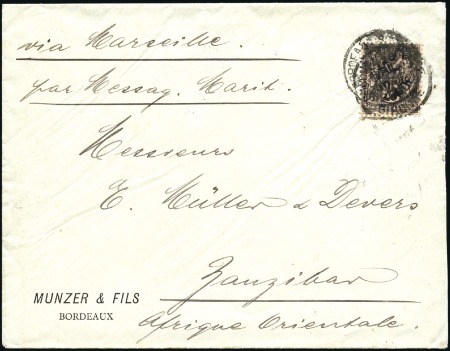 via Marseille.
par Messag. Marit.
Messieurs
E. Müller & Devers
Zanzibar
Afrique Orientale.
MUNZER & FILS
BORDEAUX